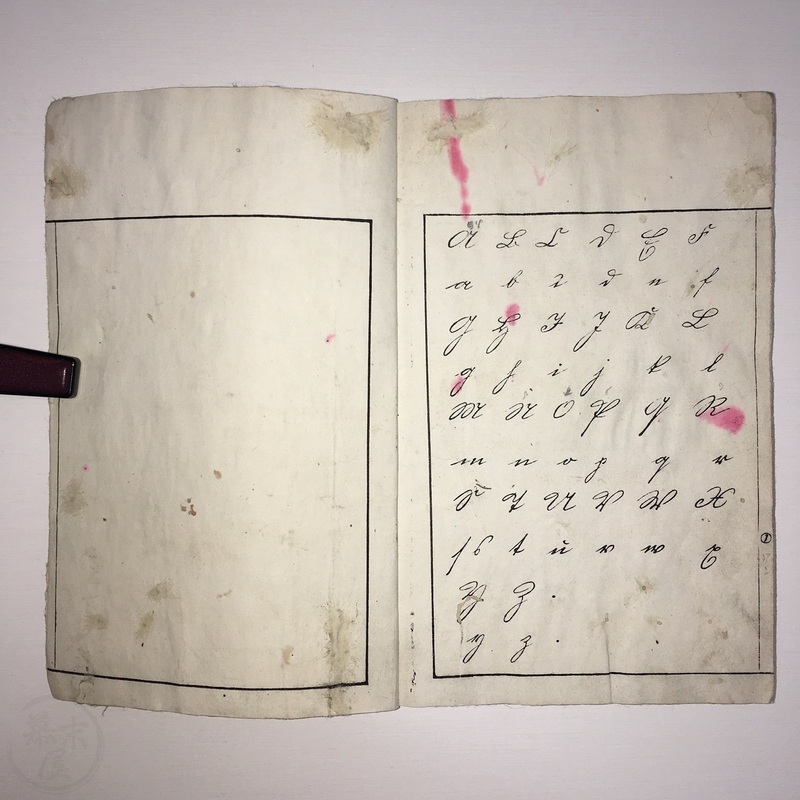 A B C D E F
a b c d e f
G H I J K L
g h i j k l
M N O P Q R
m n o p q r
S T U V W X
ſ s t u v w x
Y Z .
y z .
①
幕末屋